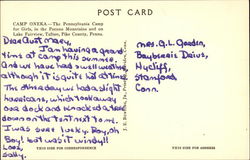 POST CARD
CAMP ONEKA — The Pennsylvania Camp
for Girls, in the Pocono Mountains and on
Lake Fairview, Tafton, Pike County, Penna.
Dear Aunt Mary,
I am having a grand
time at camp this summer.
And we have had swell weather
although it is quite hot at times.
The other day we had a slight
hurricane, which took away
our dock and knocked a tree
down on the tent next to me.
I was sure lucky. Boy, oh
Boy! but was it windy!!
Love,
Sally.
Mrs. G. L. Gooden,
Drive,
Stamford
Conn.
THIS SIDE FOR CORRESPONDENCE
THIS SIDE FOR ADDRESS